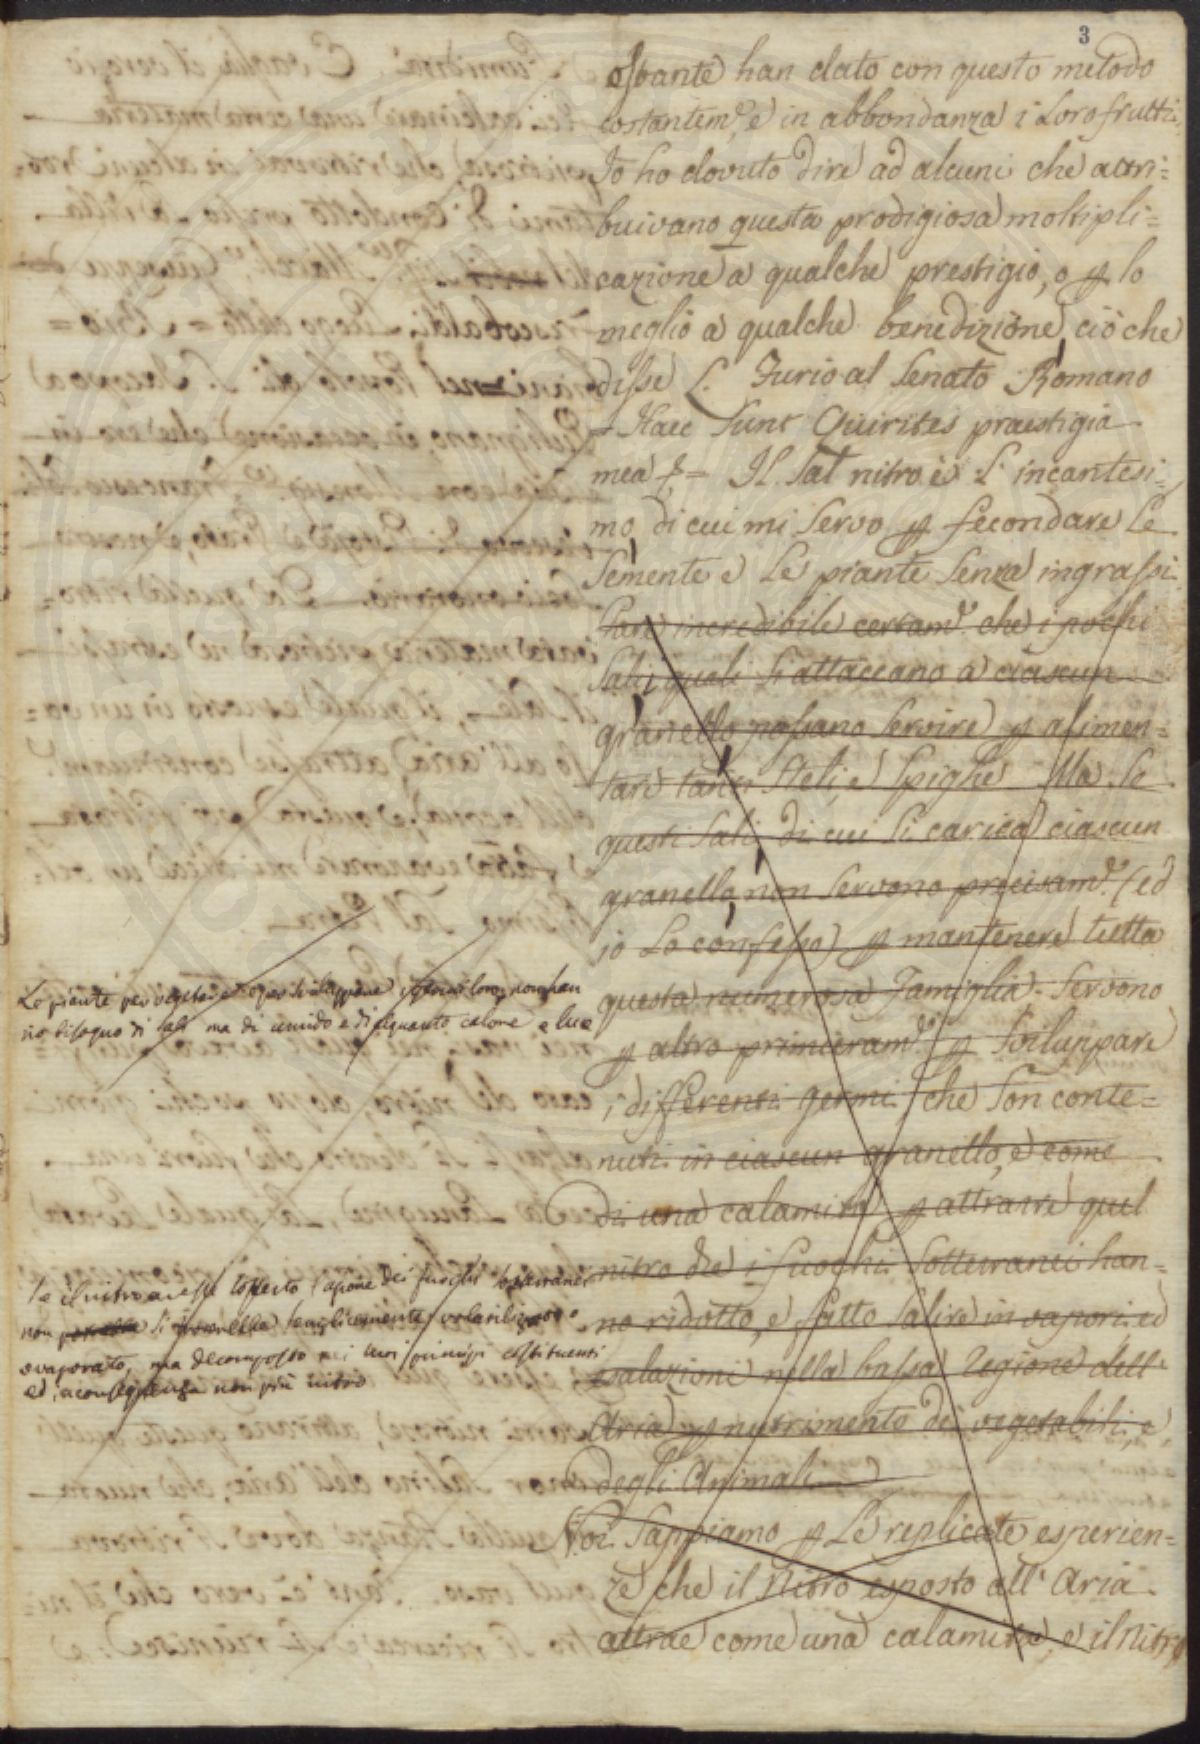 3
esbante han dato con questo metodo
costantem.e, e in abbondanza i Loro frutti.
Io ho dovuto dire ad alcuni che attri=
buivano questa prodigiosa moltipli=
cazione a qualche prestigio, o p lo
meglio a qualche benedizione, ciò che
disse L. Furio al Senato Romano
= Haec sunt Quirites praestigia
mea &= Il Sal nitro è L'incantesi=
mo, di cui mi servo p fecondare Le
Semente e Le piante Senza ingrassi.
Parrà incredibile certam.e che i pochi
Sali, quali si attaccano a ciascun
granello possano Servire p alimen=
tare tanti Steli, e Spighe. Ma Se
questi Sali, di cui Si carica ciascun
granello, non Servono precisam.e (ed
io Lo confesso) p mantenere tutta
questa numerosa Famiglia. Servono
p altro primieram.e p sviluppare
i differenti germi, che Son conte=
nuti in ciascun granello, e come
di una calamita p attrarre quel
nitro che i fuochi Sotterranei han=
no ridotto, e fatto Salire in vapori, ed
esalazioni nella bassa Regione dell'
Aria p nutrimento dei vegetabili, e
degli Animali
Noi Sappiamo p Le replicate esperien=
ze che il Nitro esposto all'Aria
attrae come una calamita, e il Nitro
Le piante per vegetare e per sviluppare i germi loro, non han
no bisogno di sali ma di umido e di alquanto calore e luce
Se il nitro avesse sofferto l'azione dei fuochi sotterranei
non si sarebbe semplicemente volatilizzato o
evaporato, ma decomposto nei suoi principj costituenti
ed a conseguenza non più nitro